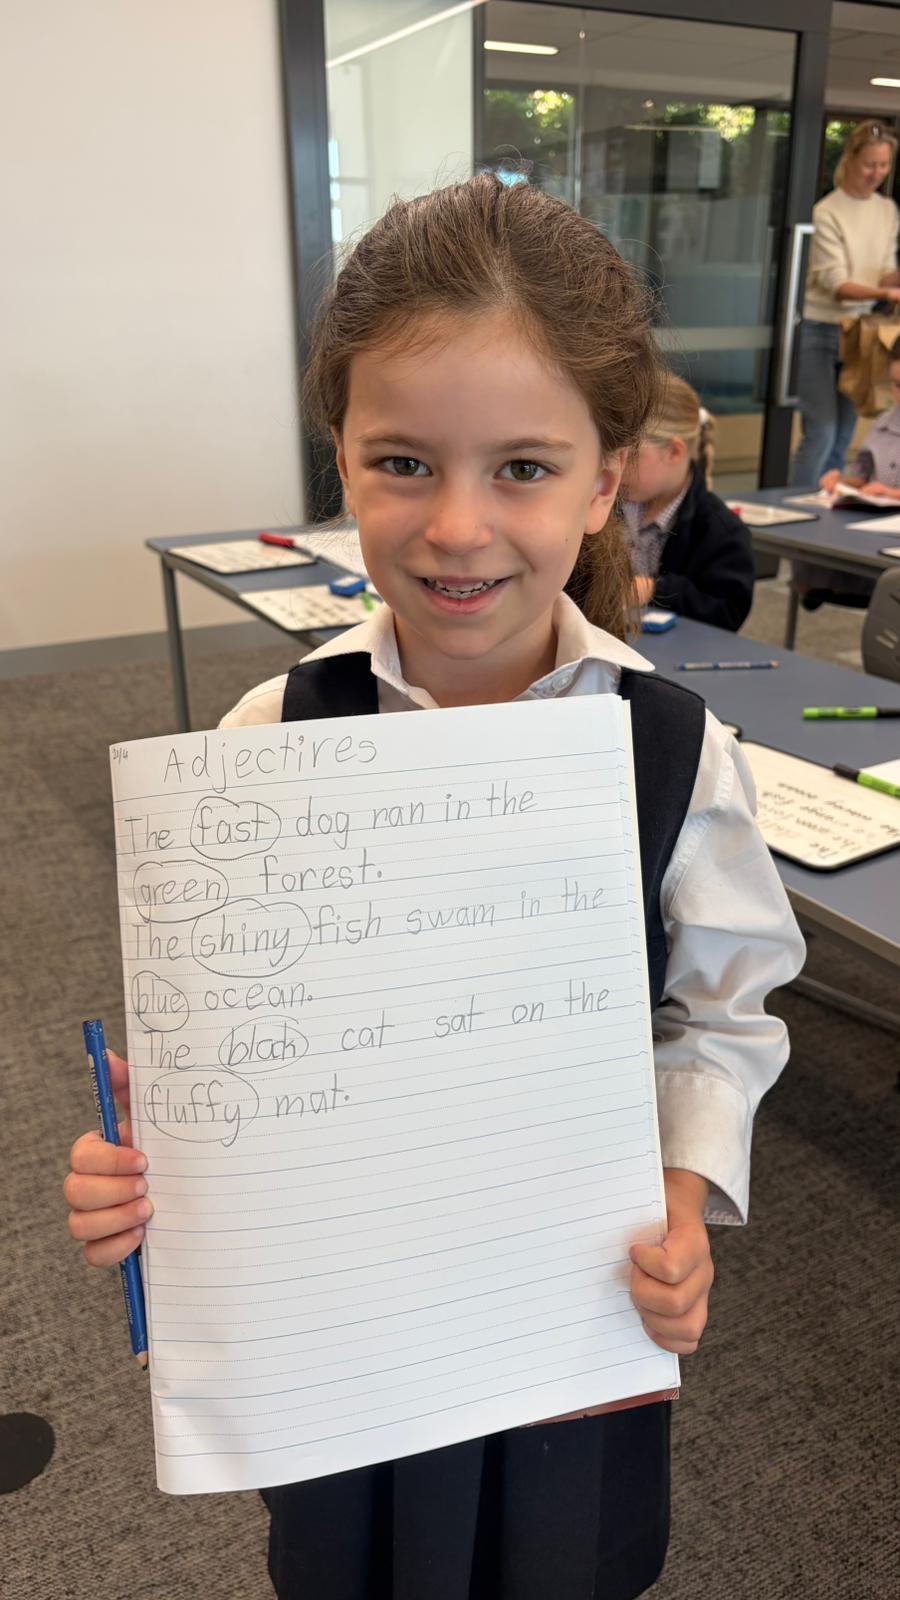 Adjectires
The fast dog ran in the
green forest.
The shiny fish swam in the
blue ocean.
The black cat sat on the
fluffy mat.